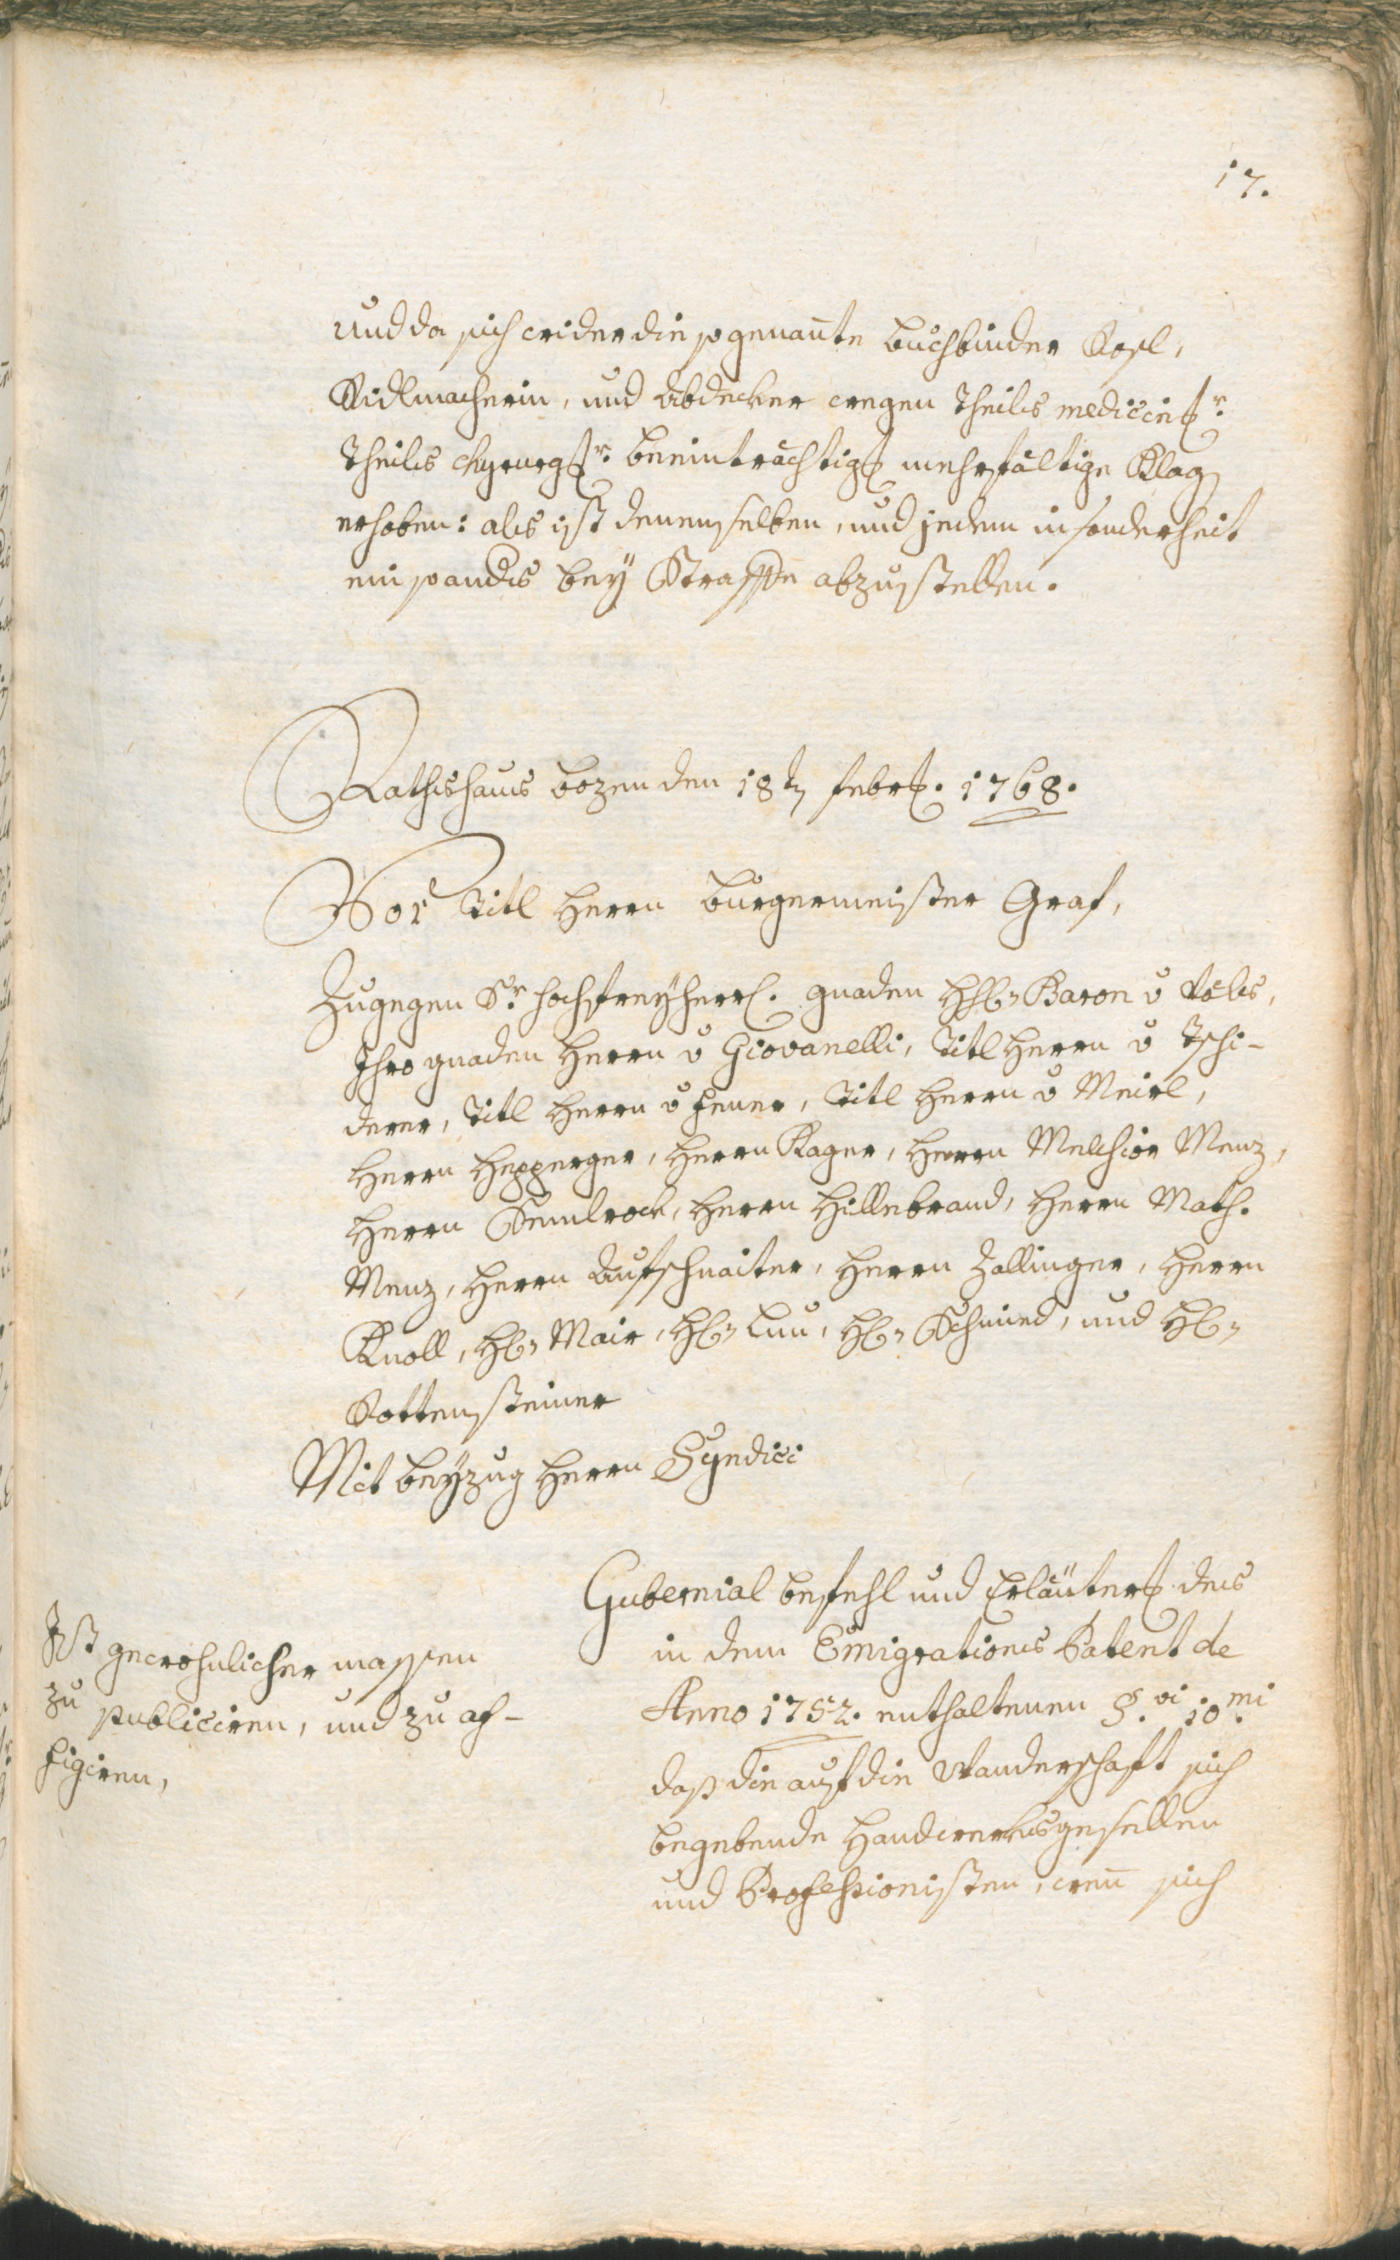 17.
und da sich wider die so genante Buchbinder Rosl,
Kidlmacherin, und Abdecker wegen theils medicinr.
theils chyrurgr. beeinträchtig mehrfältige Klag
erhoben: als ist denenselben, und jedem in sonderheit
ein solches bey Straffe abzustellen.
Rathshaus Bozen den 18t Febr. 1768.
Vor Titl Herrn Burgermeister Graf,
Zugegen Sr. hochfreyherrl. gnaden H. Baron v Vels,
Ihro gnaden Herrn v Giovanelli, Titl Herrn v Tschi-
derer, Titl Herrn v Hener, Titl Herrn v Meirl,
Herrn Hepperger, Herrn Kager, Herrn Melchior Menz,
Herrn Semlrock, Herrn Hillebrand, Herrn Math.
Menz, Herrn Aufschnaiter, Herrn Zallinger, Herrn
Knoll, H. Mair, H. Lun, H. Schmied, und H.
Rottensteiner
Mit beyzug Herrn Syndici
Ist gewohnlicher massen
zu publiciren, und zu af-
figiren,
Gubernial befehl und Erläuter des
in dem Emigrations Patent de
Anno 1752. enthaltenen §.vi 10mi
daß die auf die Wanderschaft sich
begebende Handwerksgesellen
und Professionisten, wen sich